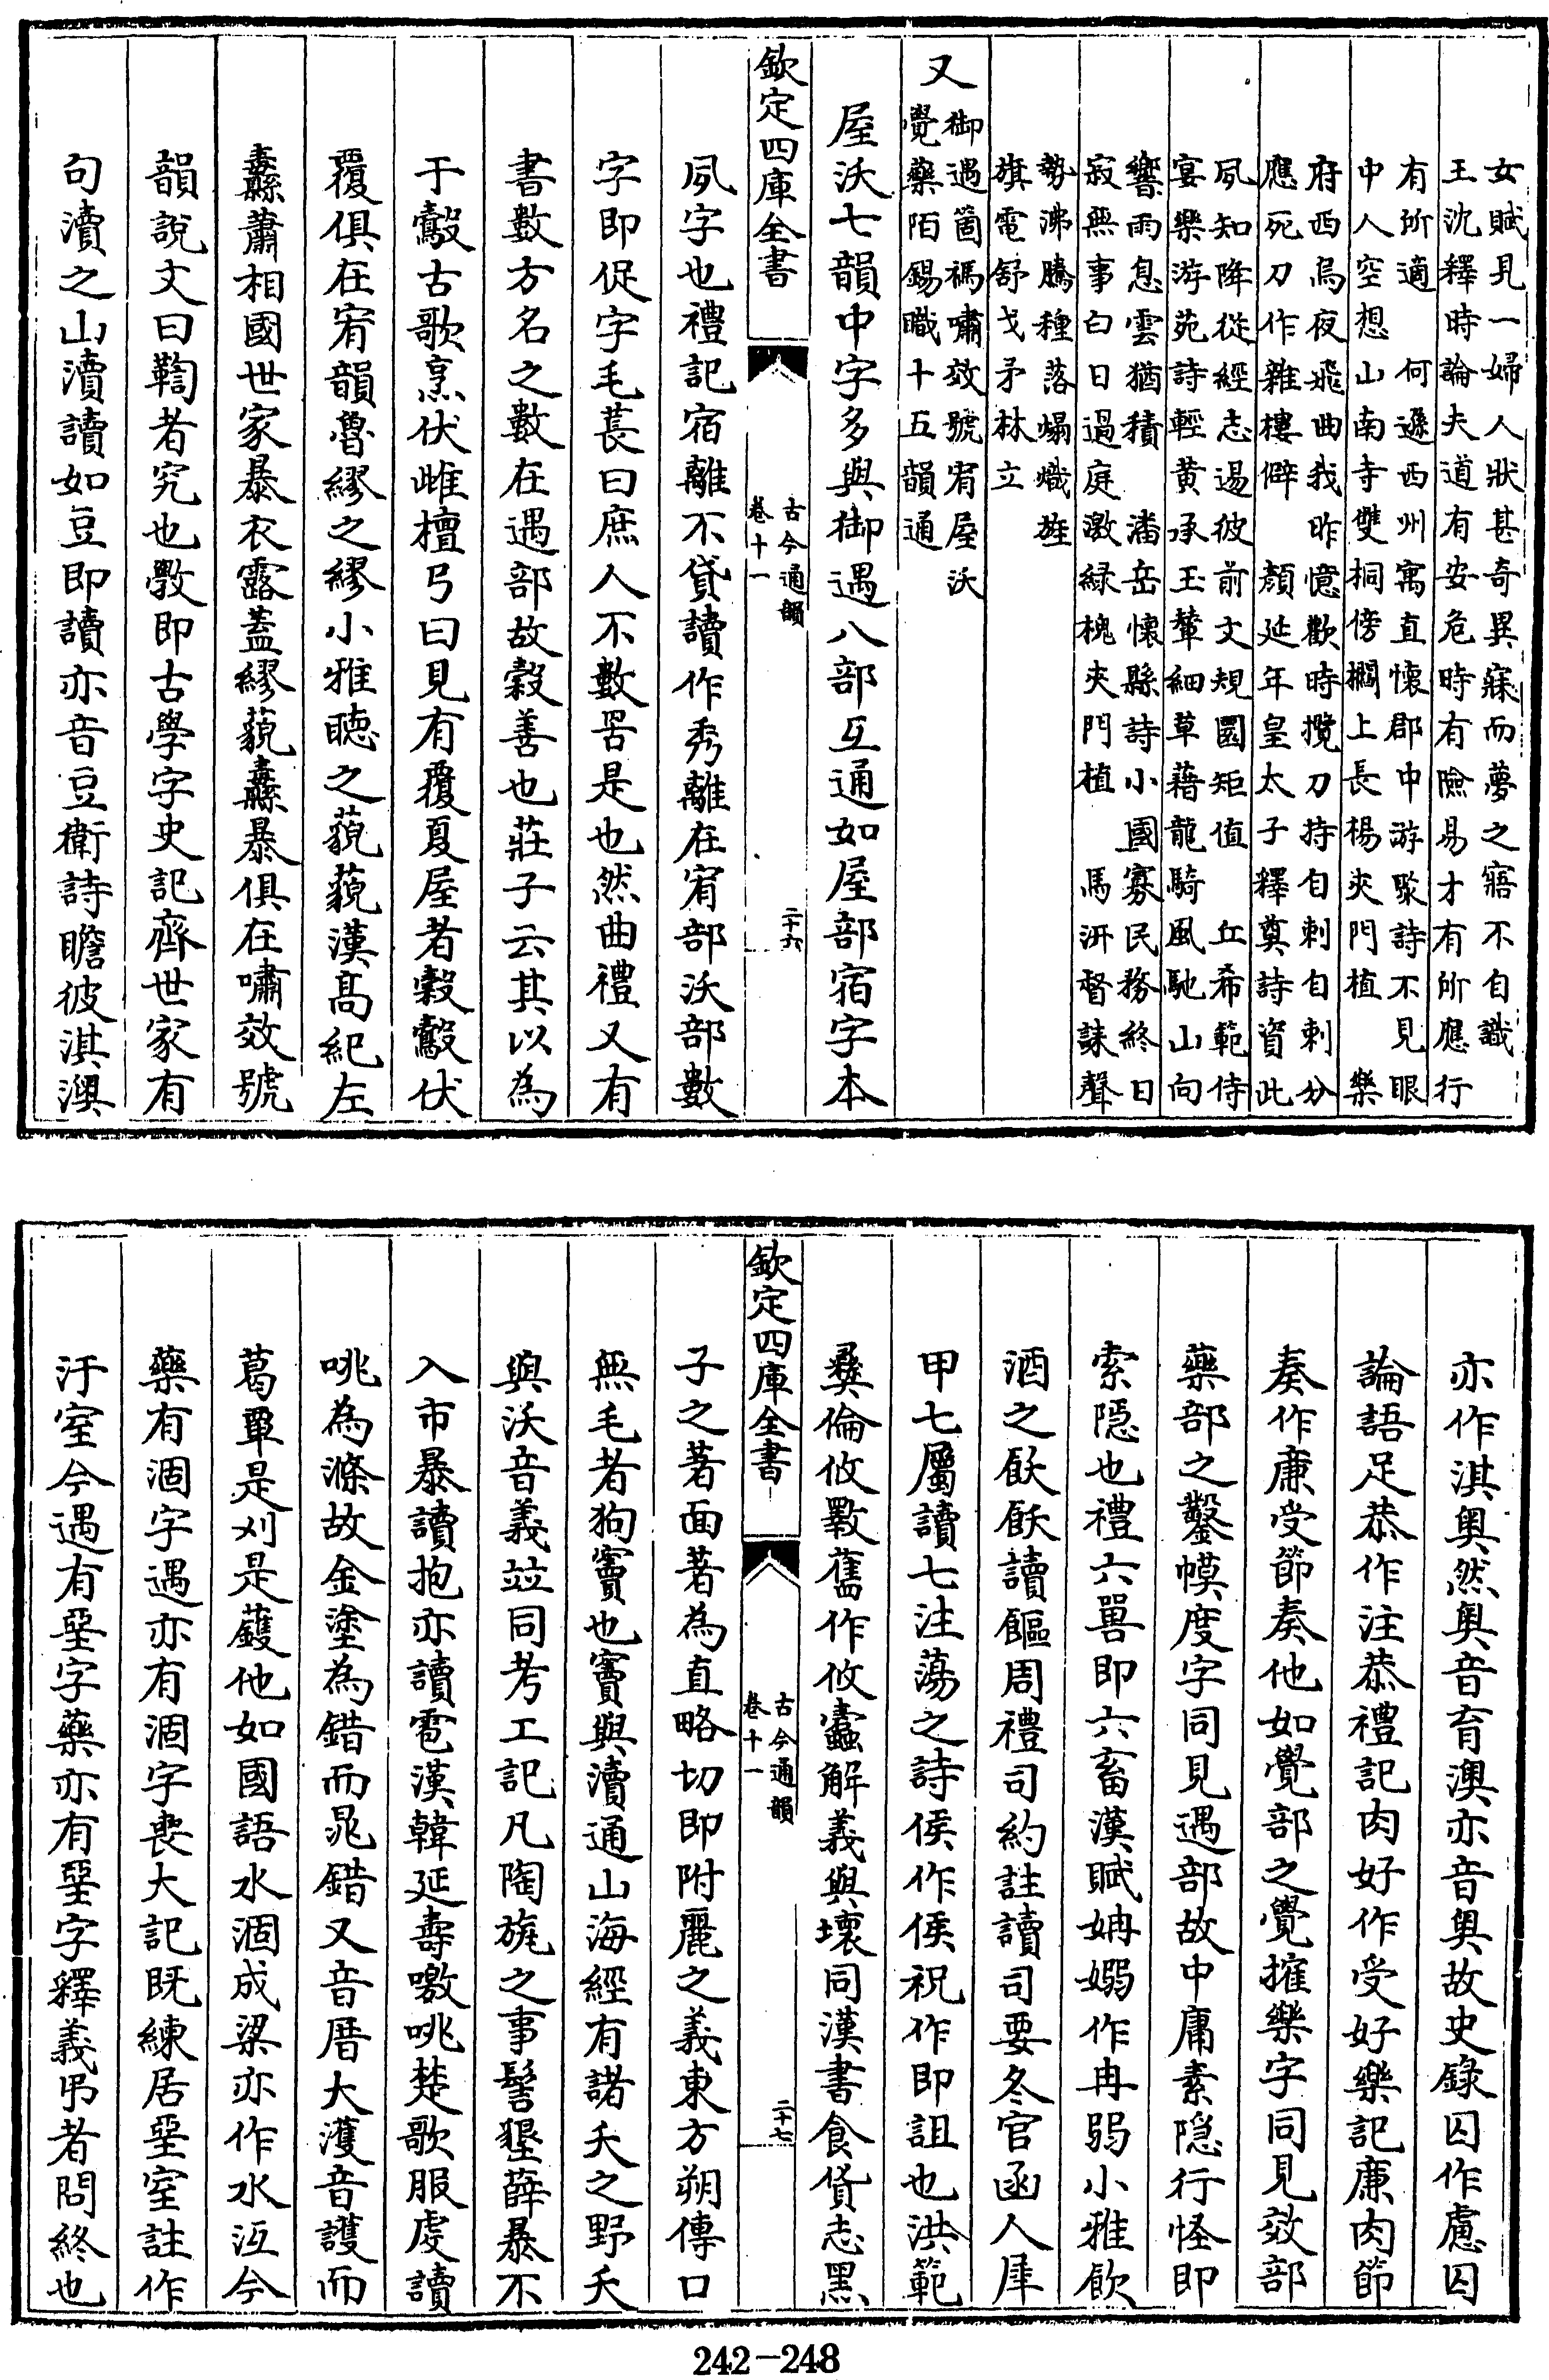 女賦見一婦人狀甚奇異寐而夢之寤不自識
王沈釋時論夫道有安危時有險易才有所應行
有所適　何遜西州寓直懷郡中游聚詩不見眼
中人空想山南寺雙桐傍櫩上長楊夾門植　樂
府西烏夜飛曲我昨憶歡時攬刀持自刺自刺分
應死刀作雜樓僻　顏延年皇太子釋奠詩資此
夙知降從經志逷彼前文規圓矩值　丘希範侍
宴樂游苑詩輕黃承玉輦細草藉龍騎風馳山向
響雨息雲猶積　潘岳懷縣詩小國寡民務終日
寂無事白日過庭激綠槐夾門植　馬汧督誄聲
勢沸騰種落煽熾旌
旗電舒戈矛林立
又
御遇箇禡嘯效號宥屋沃
覺藥陌錫職十五韻通
屋沃七韻中字多與御遇八部互通如屋部宿字本
欽定四庫全書
古今通韻
卷十一
二十六
夙字也禮記宿離不貸讀作秀離在宥部沃部數
字即促字毛萇曰庶人不數罟是也然曲禮又有
書數方名之數在遇部故穀善也莊子云其以為
于鷇古歌烹伏雌檀弓曰見有覆夏屋者穀鷇伏
覆俱在宥韻魯繆之繆小雅聽之藐藐漢高紀左
纛蕭相國世家暴衣露蓋繆藐纛暴俱在嘯效號
韻說文曰鞫者究也斆即古學字史記齊世家有
句瀆之山瀆讀如豆即讀亦音豆衛詩瞻彼淇澳
亦作淇奧然奧音育澳亦音奧故史錄囚作慮囚
論語足恭作注恭禮記肉好作受好樂記廉肉節
奏作廉受節奏他如覺部之覺搉樂字同見效部
藥部之鑿幙度字同見遇部故中庸素隱行怪即
索隱也禮六嘼即六畜漢賦姌嫋作冉弱小雅飲
酒之飫飫讀饇周禮司約註讀司要冬官函人犀
甲七屬讀七注蕩之詩侯作侯祝作即詛也洪範
彝倫攸斁舊作攸蠹解義與壞同漢書食貨志黑
欽定四庫全書
古今通韻
卷十一
二十七
子之著面著為直略切即附麗之義東方朔傳口
無毛者狗竇也竇與瀆通山海經有諸夭之野夭
與沃音義竝同考工記凡陶旊之事髻墾薜暴不
入市暴讀抱亦讀雹漢韓延壽噭咷楚歌服虔讀
咷為滌故金塗為錯而晁錯又音厝大濩音護而
葛覃是刈是蠖他如國語水涸成梁亦作水沍今
藥有涸字遇亦有涸字喪大記旣練居堊室註作
汙室今遇有堊字藥亦有堊字釋義弔者問終也
242-248